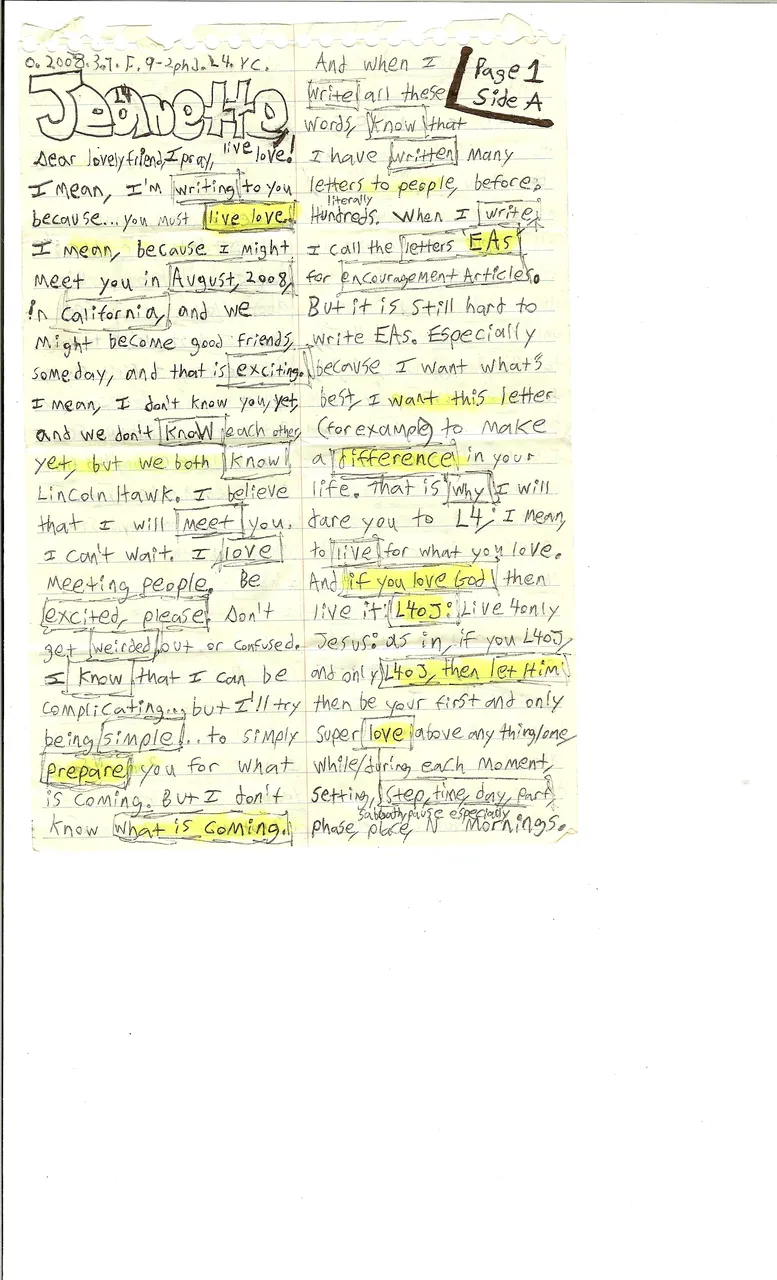 0. 2008.3.7. F. 9-2phJ. L4. YC.
Jeanette,
L4
Dear lovely friend, I pray, live love!
I mean, I'm writing to you
because... you must live love.
I mean, because I might
meet you in August, 2008,
in California, and we
might become good friends,
someday, and that is exciting.
I mean, I don't know you, yet,
and we don't know each other,
yet, but we both know
Lincoln Hawk. I believe
that I will meet you.
I can't wait. I love
meeting people. Be
excited, please. Don't
get weirded out or confused.
I know that I can be
complicating... but I'll try
being simple... to simply
prepare you for what
is coming. But I don't
know what is coming.
Page 1
Side A
And when I
write all these
words, know that
I have written many
letters to people, before.
literally
Hundreds. When I write,
I call the letters 'EAs'
for encouragement Articles.
But it is still hard to
write EAs. Especially
because I want what's
best, I want this letter
(for example) to make
a difference in your
life. That is why I will
dare you to L4; I mean,
to live for what you love.
And if you love God, then
live it: L4oJ: Live 4only
Jesus: as in, if you L4oJ,
and only L4oJ, then let Him
then be your first and only
super love above any thing/one,
while/during each moment,
setting, step, time, day, part,
sabbath, pause especially
phase, place, N Mornings.